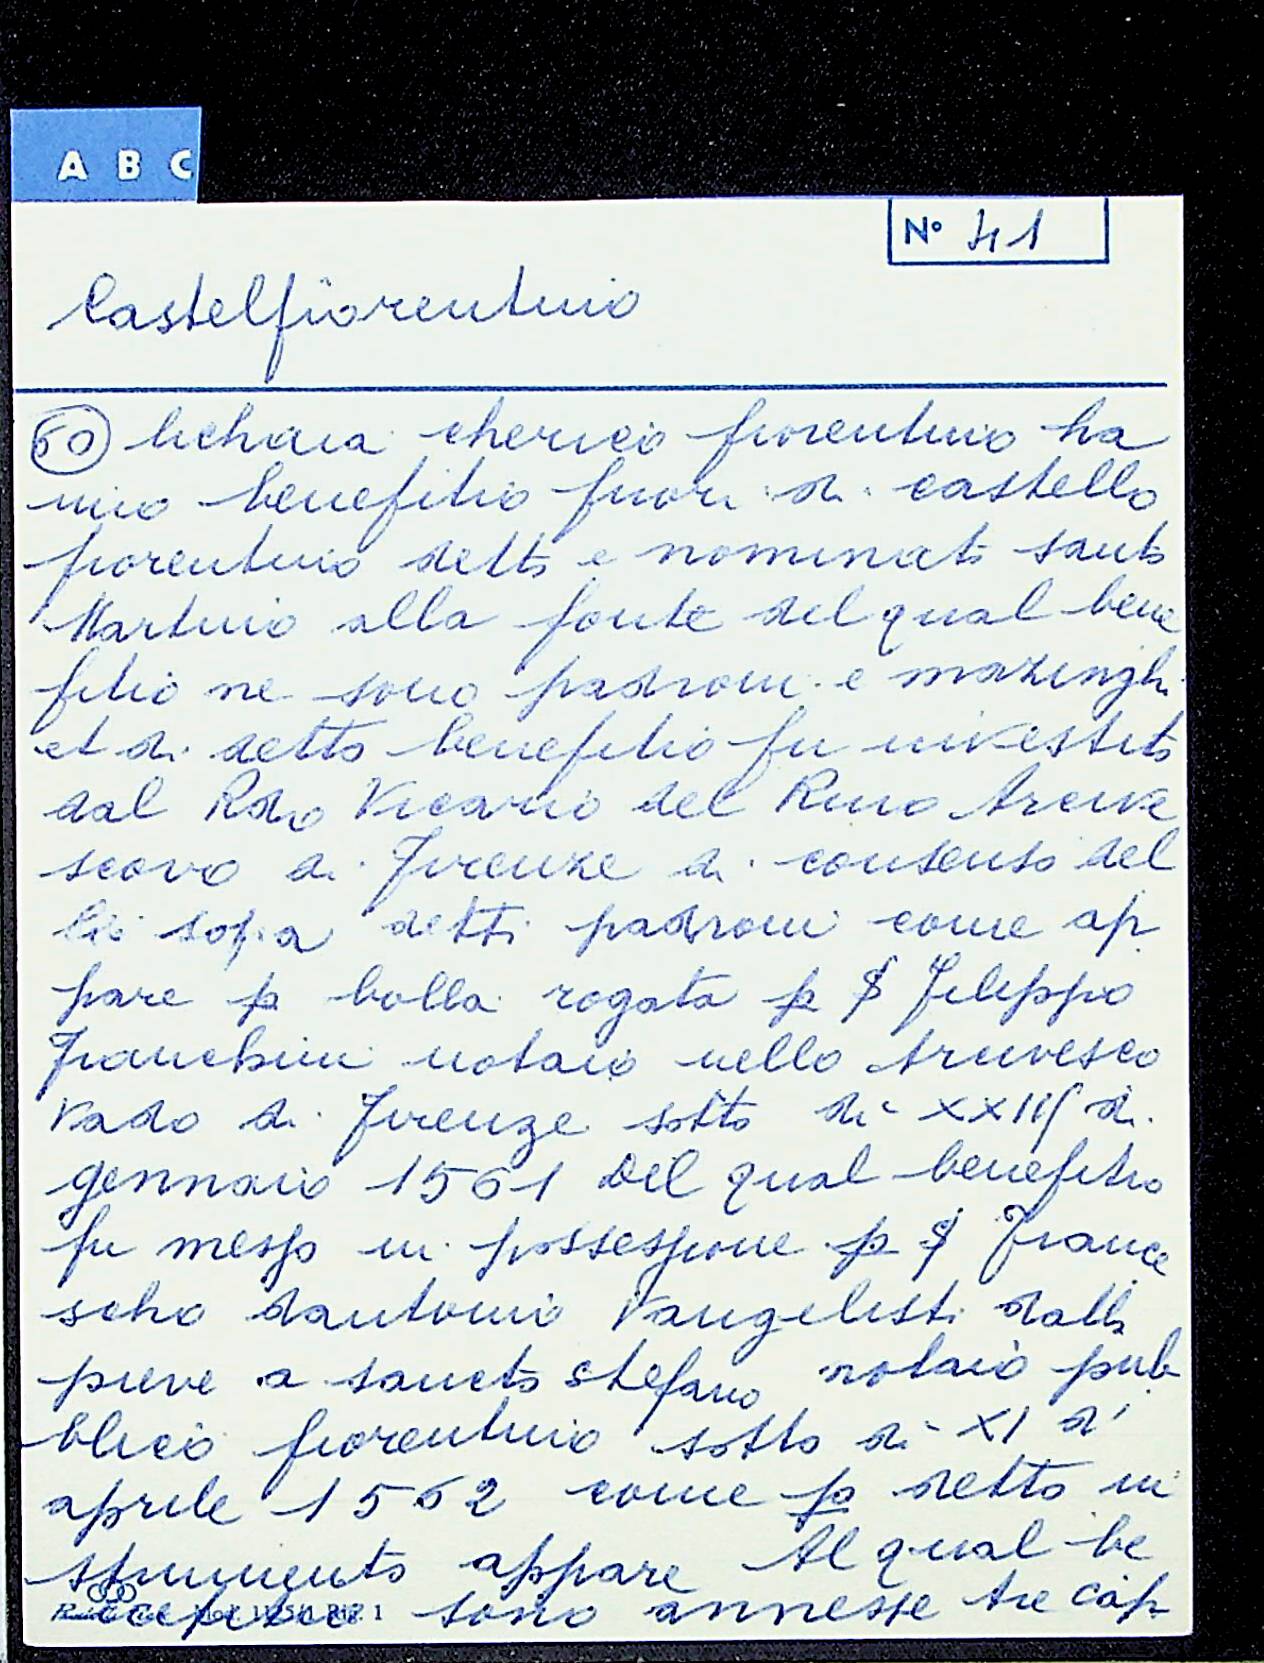 A B C
N° 41
Castelfiorentino
60 cherico fiorentino ha
uno benefitio fuori di castello
fiorentino detto e nominato santo
Martino alla fonte del qual bene
fitio ne sono padroni e mazinghi
et di detto benefitio fu investito
dal Rdo Vicario del Rmo Arcive
scovo di Firenze di consenso del
li sopa detti padroni come ap
pare p bolla rogata p $ Filippo
Franchini notaio nello Arcivesco
vado di Firenze sotto di XXIII di
gennaio 1561 Del qual benefitio
fu messo in possessione p $ France
scho dantonio Vangelisti dalla
pieve a sancto Stefano notaio pub
blico fiorentino sotto di XI di
aprile 1562 come p detto in
strumento appare Al qual be
nefitio sono annesse tre cap